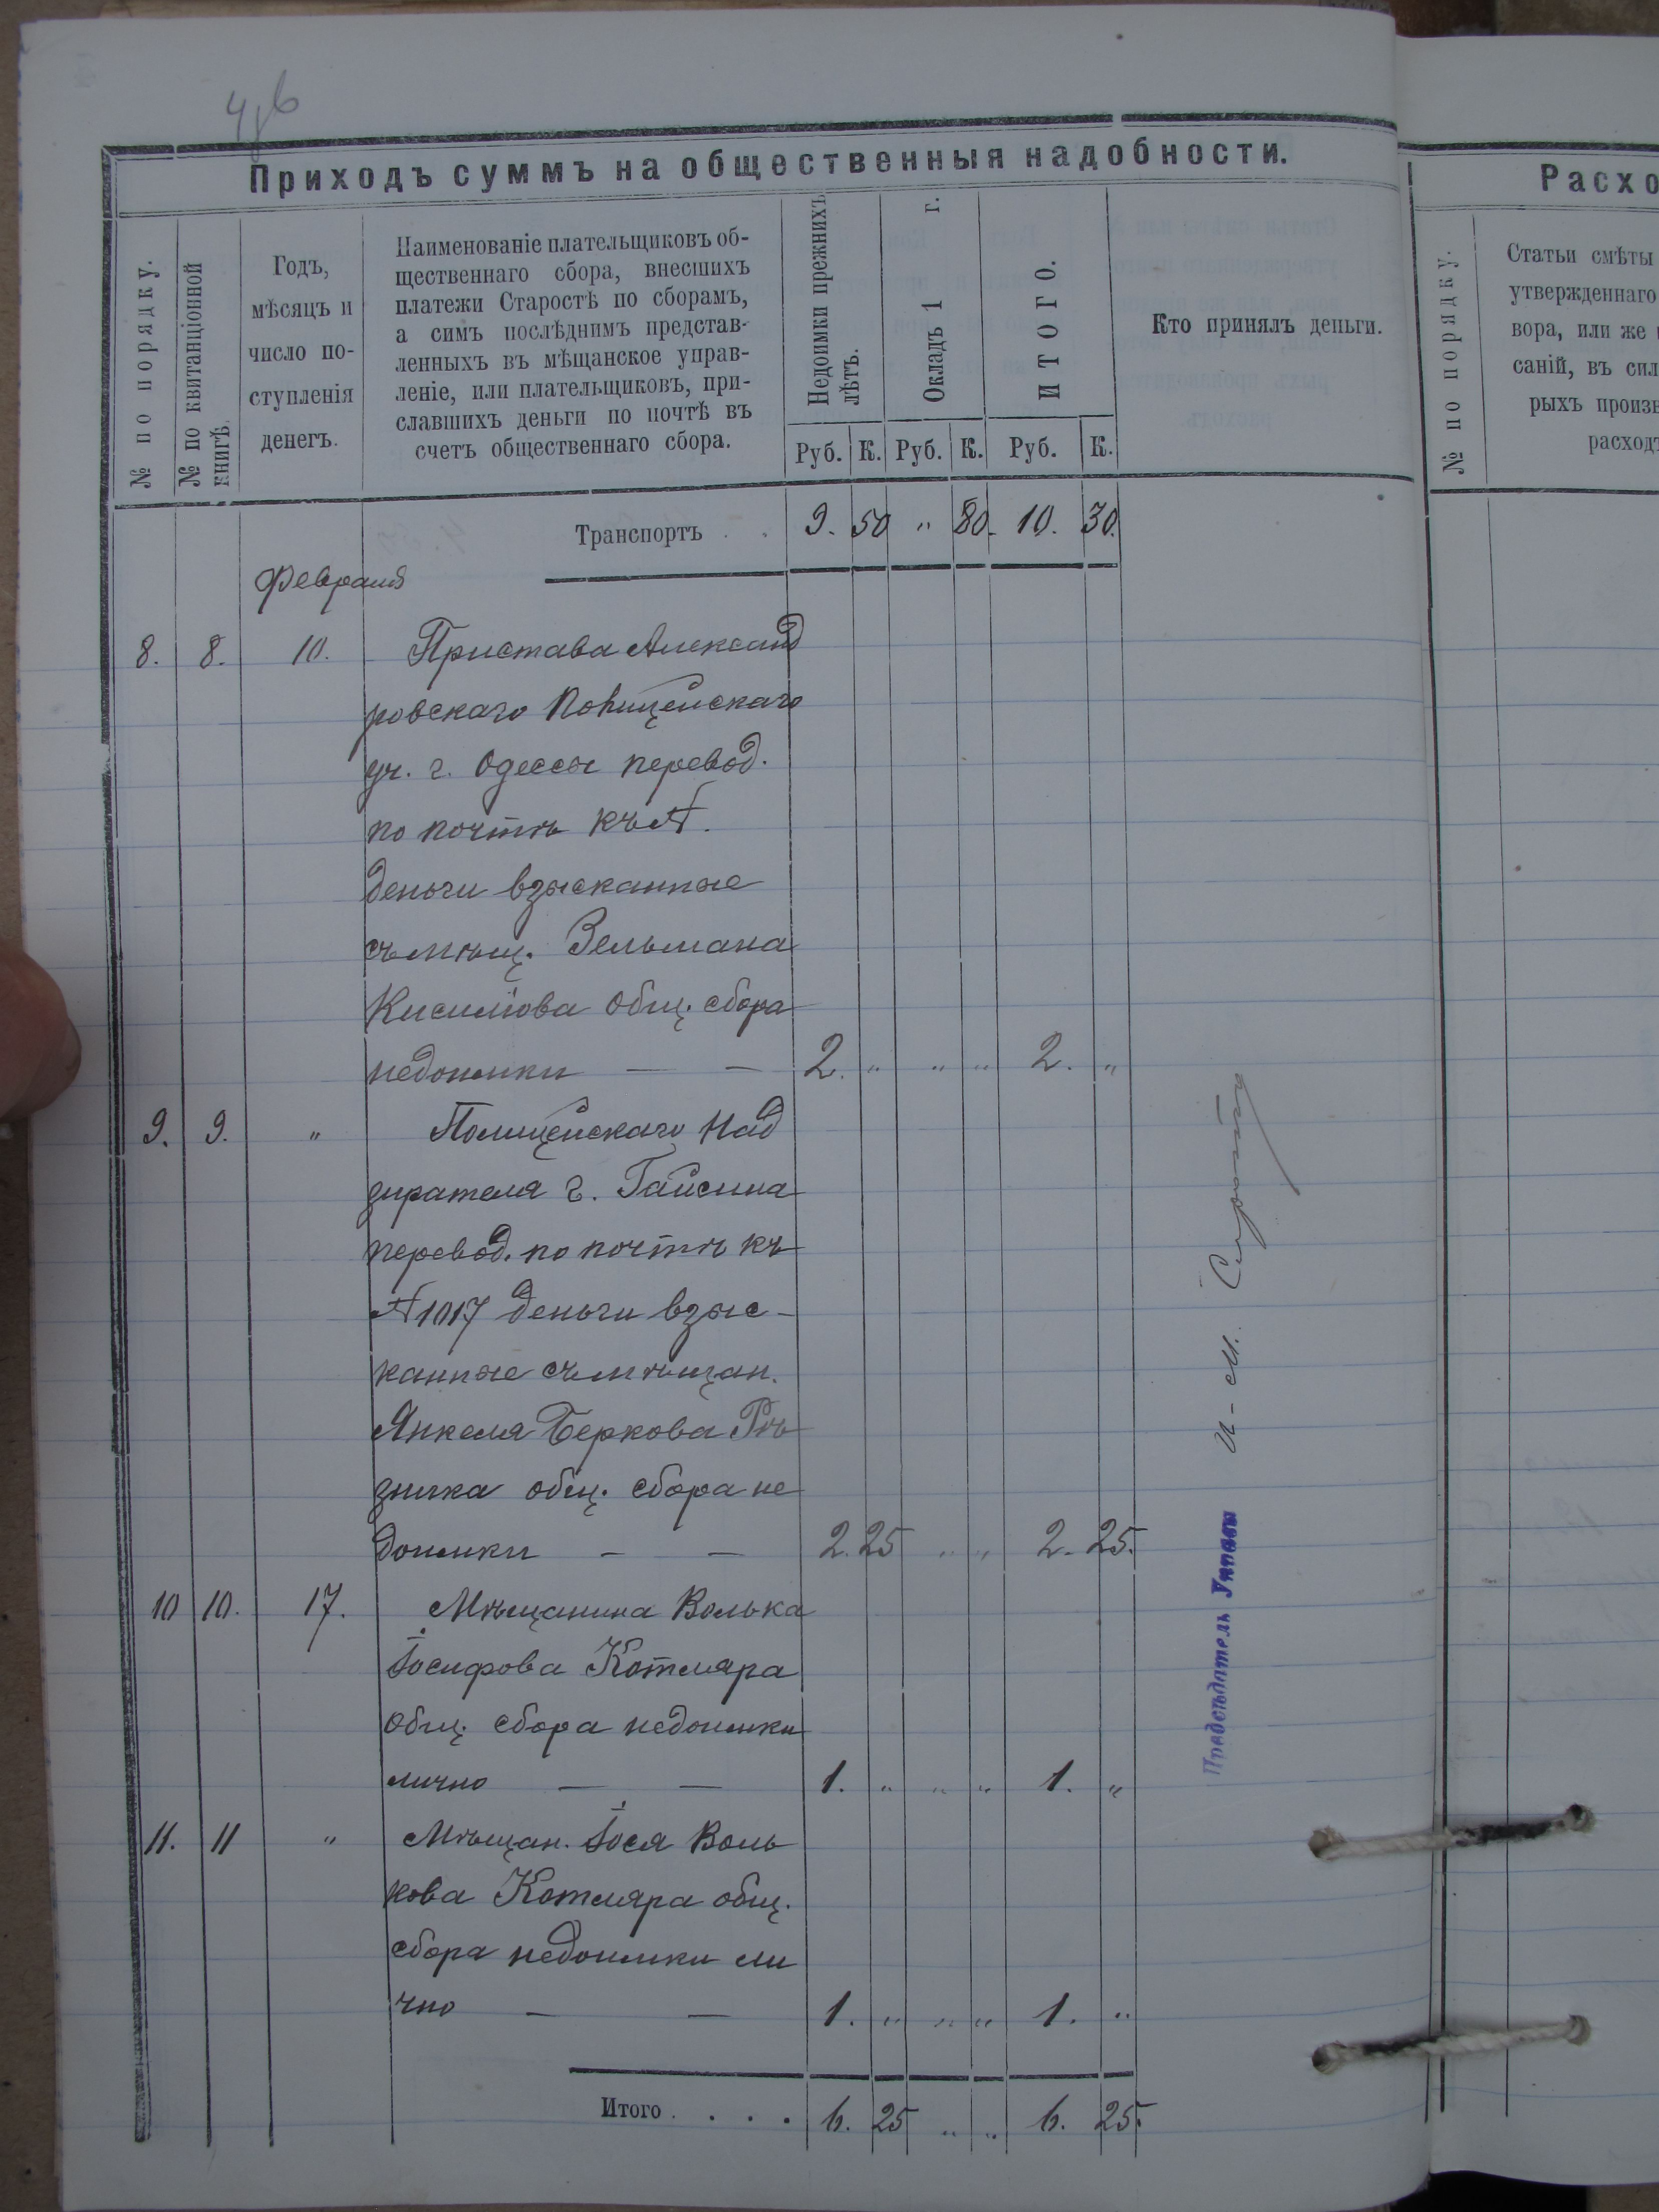 Приходъ суммъ на общественныя надобности.
№ по порядку.
№ по квитанціонной
книгѣ.
Годъ,
мѣсяцъ и
число по-
ступленія
денегъ.
Наименованіе плательщиковъ об-
щественнаго сбора, внесшихъ
платежи Старостѣ по сборамъ,
а симъ послѣднимъ представ-
ленныхъ въ мѣщанское управ-
леніе, или плательщиковъ, при-
славшихъ деньги по почтѣ въ
счетъ общественнаго сбора.
Недоимки прежнихъ
лѣтъ.
Окладъ 1 г.
ИТОГО.
Кто принялъ деньги.
Руб. К. Руб. К. Руб. К.
Транспортъ . . 9. 50 " 80. 10. 30.
Февраля
8. 8. 10. Пристава Александ
ровскаго Полицейскаго
уч. г. Одессы перевод.
по почтѣ къ №.
деньги взысканные
съ мѣщ. Зельмана
общ. сбора
недоимки — — 2. " " " 2. "
9. 9. " Полицейскаго Над
зирателя г. Гайсина
перевод. по почтѣ къ
№ 1017 деньги взыс-
канные съ мѣщан.
Янкеля Беркова Рѣ
зника общ. сбора не
доимки — — 2. 25 " " 2. 25.
10 10. 17. Мѣщанина Волька
Іосифова Котляра
общ. сбора недоимки
лично — — 1. " " " 1. "
11. 11 " Мѣщан. Іося Воль
кова Котляра общ.
сбора недоимки ли
чно — — 1. " " " 1. "
Итого . . . . 6. 25 " " 6. 25.
Предсѣдатель Управы
Расхо
№ по порядку.
Статьи смѣты
утвержденнаго
вора, или же
саній, въ сил
рыхъ произв
расход